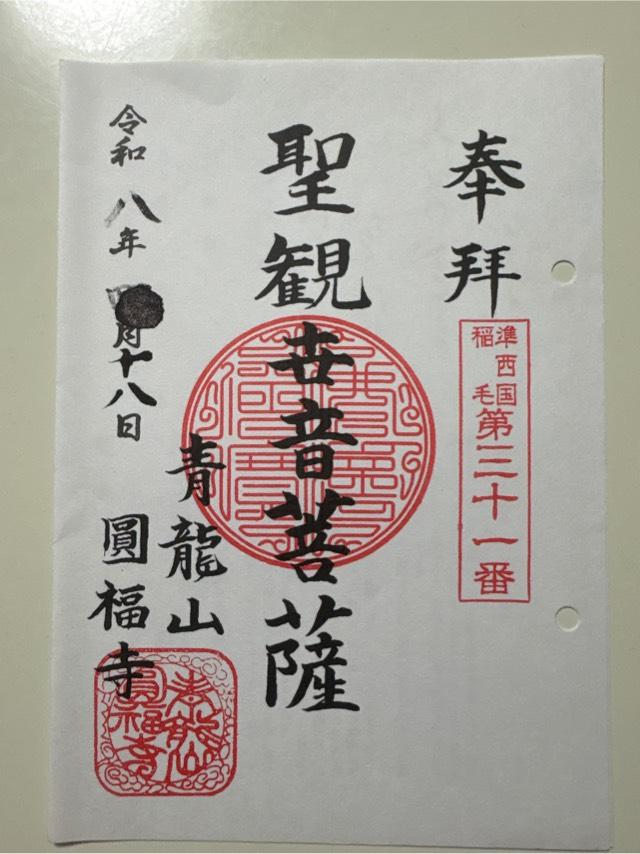 奉拝
準西国
稲毛
第三十一番
聖観世音菩薩
令和八年 月十八日
青龍山
圓福寺